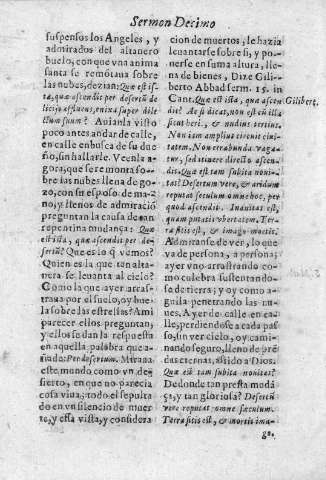 Sermon Decimo
suspensos los Angeles, y
admirados del altanero
buelo, con que vna anima
santa se remōtaua sobre
las nubes, dezian: Quæ est is-
ta, quæ ascendit per desertũ de
licijs affluens, enixa super dile
ctum suum? Auianla visto
poco antes andar de calle,
en calle en busca de su due
ño, sin hallarle. Veenla a-
gora, que se remonta so-
bre las nubes llena de go-
zo, con su esposo de ma-
no, y llenos de admiraciõ
preguntan la causa de tan
repentina mudança: Quæ
est ista, quæ ascendit per de-
sertũ? Que es lo q̃ vemos?
Quien es la que tan alta-
nera se leuanta al cielo?
Como la que ayer arras-
traua por el suelo, oy bue
la sobre las estrellas? Ami
parecer ellos preguntan,
y ellos se dan la respuesta
en aquella palabra que a-
ñade: Per desertum. Miraua
este mundo como vn de-
sierto, en que no parecia
cosa viua, todo el sepulta
do en vn silencio de muer
te, y essa vista, y considera
cion de muertos, le hazia
leuantarse sobre si, y po-
nerse en suma altura, lle-
na de bienes, Dize Gili-
berto Abbad serm. 15. in
Cant. Quæ est ista, quæ ascen
dit? Ac si dicat, non est in illa
sicut heri, & nudius tertius.
Non iam amplius circuit ciui-
tatem. Non errabunda vaga-
tur, sed itinere directo ascen-
dit. Quæ est tam subita noui-
tas? Desertum vere, & aridum
reputat sæculum omne hoc, per
quod ascendit. Inanitas est,
quam putatis vbertatem. Ter
ra sitis est, & imago mortis.
Admiranse de ver, lo que
va de persona, a persona;
ayer vno arrastrando co-
mo culebra sustentando-
se de tierra; y oy como a-
guila penetrando las nu-
ues. Ayer de calle en ca-
lle, perdiendose a cada pas
so, sin ver cielo, oy cami-
nando seguro, lleno de pré
das eternas, assido a Dios.
Quæ est tam subita nouitas?
De donde tan presta mudã
ça, y tan gloriosa? Desertũ
vere reputat omne sæculum.
Terra sitis est, & mortis ima-
go.
Gilibert,